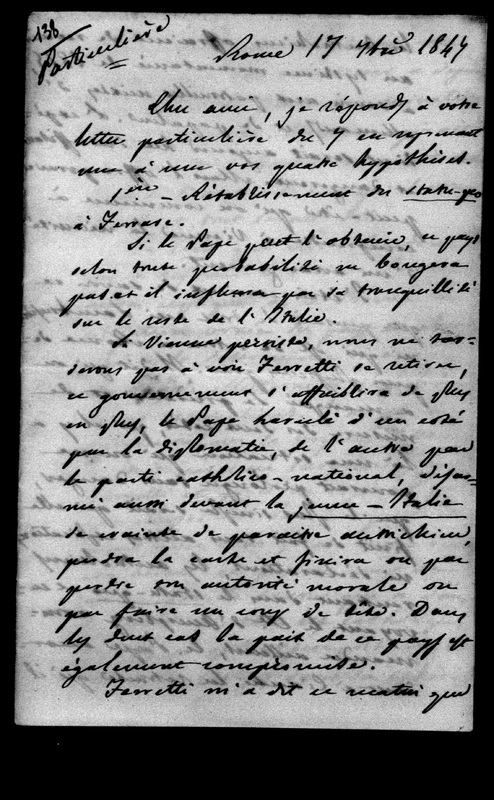 138
Particulière
Rome 17 7bre 1847
Cher ami, je réponds à votre
lettre particulière du 7 en reprenant
une à une vos quatre hypothèses.
1ère - Rétablissement du statu-quo
à Ferrare.
Si le Pape peut l'obtenir, ce pays
selon toute probabilité ne bougera
pas et il influera par sa tranquillité
sur le reste de l'Italie.
Si Vienne persiste, nous ne tar-
derons pas à voir Ferretti se retirer,
ce gouvernement s'affaiblira de plus
en plus, le Pape harcelé d'un côté
par la diplomatie, de l'autre par
le parti catholico-national, désar-
mé aussi devant la jeune-Italie
de crainte de paraître autrichien,
perdra la carte et finira ou par
perdre son autorité morale ou
par faire un coup de tête. Dans
les deux cas la paix de ce pays est
également compromise.
Ferretti m'a dit ce matin que